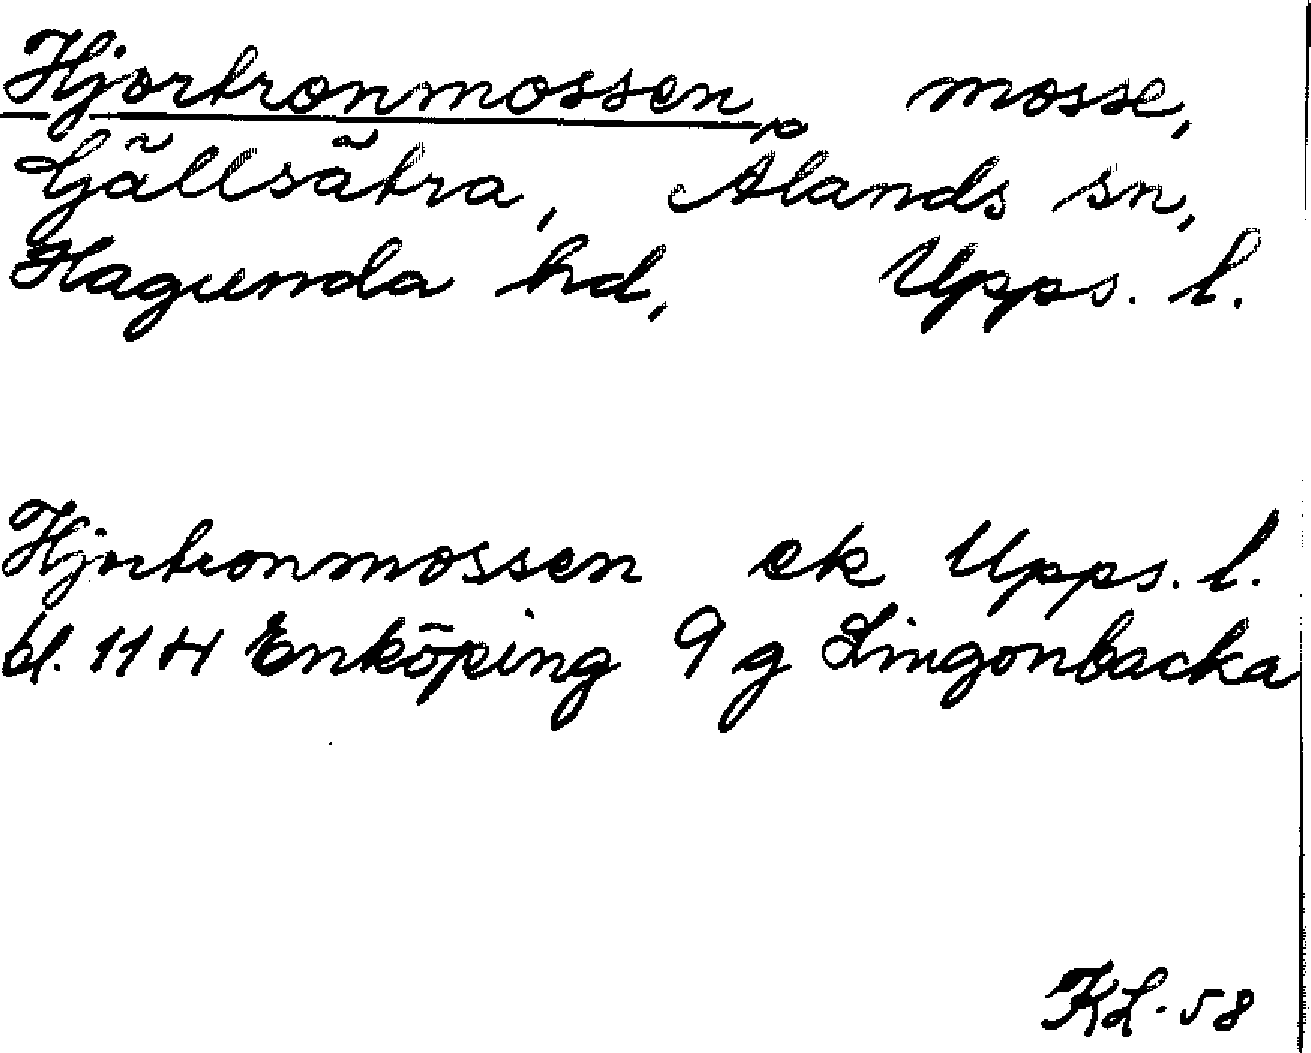 Hjortronmossen, mosse,
Gjällsätra, Ålands sn,
Hagunda hd, Upps. l.
Hjortronmossen ek Upps. l.
bl. 11 H Enköping 9 g Lingonbacka
KL-58